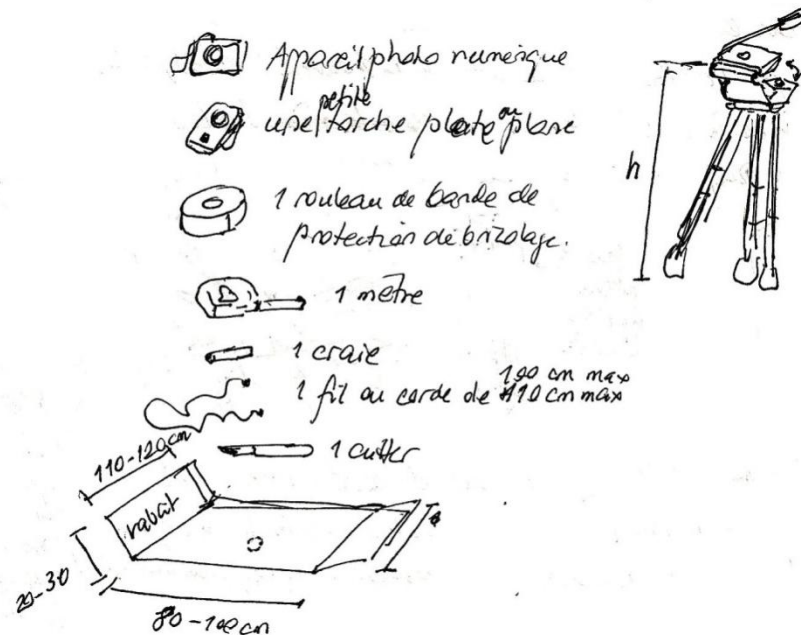 Appareil photo numérique
petite
une torche plate ou plane
1 rouleau de bande de
protection de brizolage.
h
1 mètre
1 craie
190 cm max
1 fil ou corde de 110 cm max
1 cutter
110-120 cm
rabat
20-30
80-100 cm